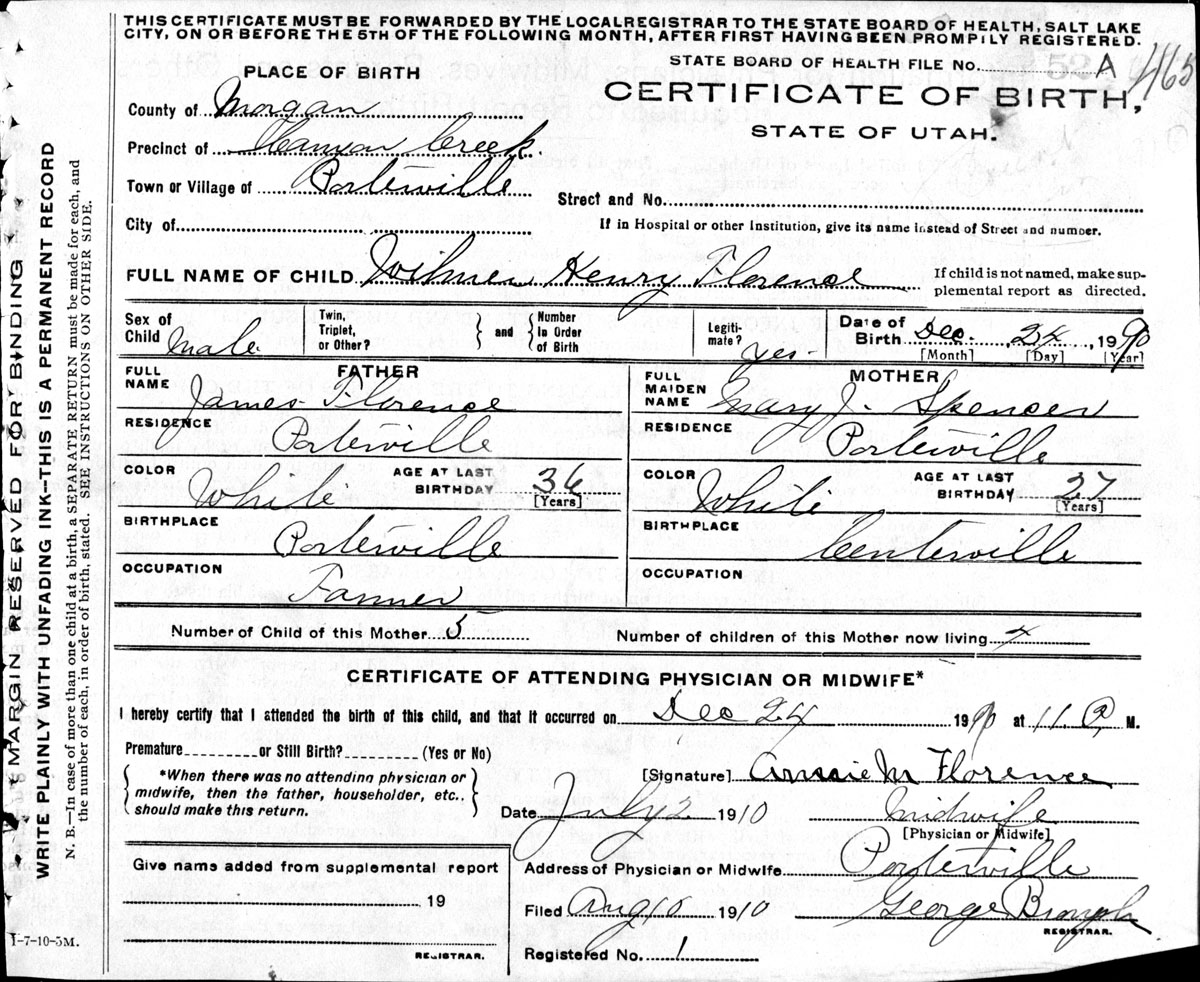 THIS CERTIFICATE MUST BE FORWARDED BY THE LOCAL REGISTRAR TO THE STATE BOARD OF HEALTH, SALT LAKE
CITY, ON OR BEFORE THE 5TH OF THE FOLLOWING MONTH, AFTER FIRST HAVING BEEN PROMPILY REGISTERED.
PLACE OF BIRTH
STATE BOARD OF HEALTH FILE NO. A 465
CERTIFICATE OF BIRTH,
STATE OF UTAH.
County of Morgan
Precinct of Canyon Creek.
Town or Village of Porterville
Street and No.
City of
If in Hospital or other Institution, give its name instead of Street and number.
FULL NAME OF CHILD Henry Florence
If child is not named, make sup-
plemental report as directed.
Sex of Child Male
Twin, Triplet, or Other?
and
Number in Order of Birth
Legiti-mate? yes
Date of Birth Dec. 24, 19
[Month] [Day] [Year]
FATHER
FULL NAME James Florence
RESIDENCE Porterville
COLOR White
AGE AT LAST BIRTHDAY 36
[Years]
BIRTHPLACE Porterville
OCCUPATION Farmer
MOTHER
FULL MAIDEN NAME Mary J. Spencer
RESIDENCE Porterville
COLOR White
AGE AT LAST BIRTHDAY 27
[Years]
BIRTHPLACE Centerville
OCCUPATION
Number of Child of this Mother 5
Number of children of this Mother now living 4
CERTIFICATE OF ATTENDING PHYSICIAN OR MIDWIFE*
I hereby certify that I attended the birth of this child, and that it occurred on Dec 24 19 at 11 M.
Premature or Still Birth? (Yes or No)
*When there was no attending physician or
midwife, then the father, householder, etc.,
should make this return.
[Signature] Annie M Florence
Date July 2 1910
Midwife
[Physician or Midwife]
Give name added from supplemental report
19
REGISTRAR.
Address of Physician or Midwife Porterville
Filed Aug 10 1910
George Brough
REGISTRAR.
Registered No. 1
1-7-10-5M.
MARGIN RESERVED FOR BINDING
WRITE PLAINLY WITH UNFADING INK—THIS IS A PERMANENT RECORD
N. B.—In case of more than one child at a birth, a SEPARATE RETURN must be made for each, and
the number of each, in order of birth, stated. SEE INSTRUCTIONS ON OTHER SIDE.